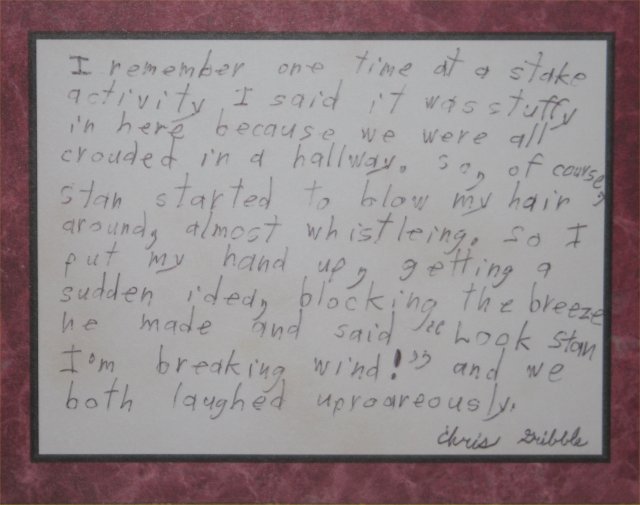 I remember one time at a stake
activity I said it was stuffy
in here because we were all
crouded in a hallway. So, of course,
Stan started to blow my hair
around, almost whistleing. So I
put my hand up, getting a
sudden idea, blocking the breeze
he made and said "Look Stan
I'm breaking wind!" and we
both laughed uproareously.
Chris Gribble